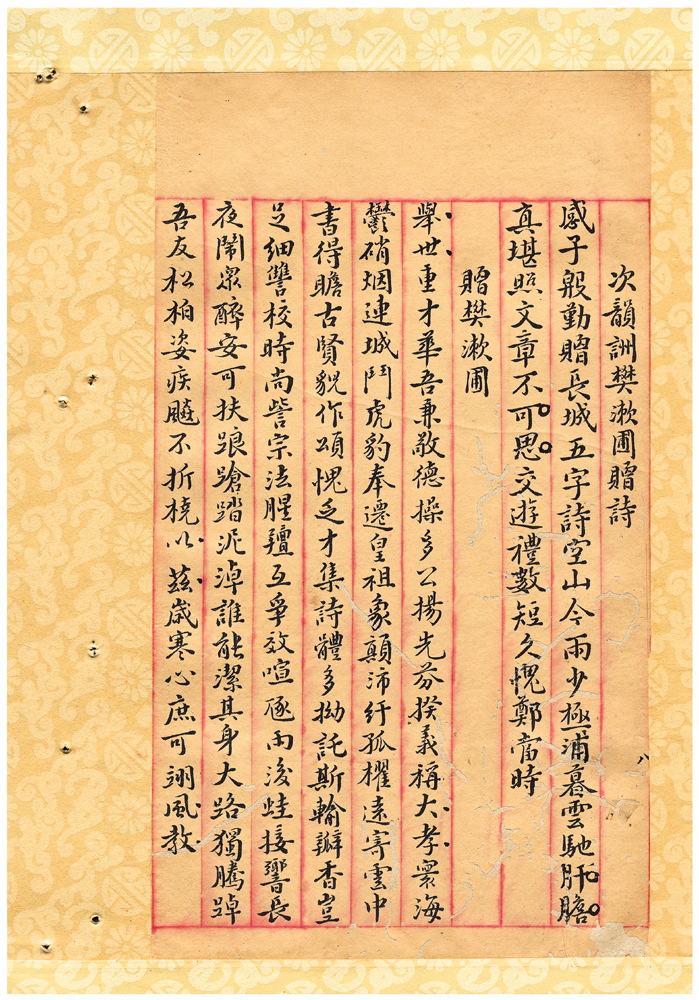 次韻詶樊漱圃贈詩
感子殷勤贈長城五字詩空山今雨少極浦暮雲馳肝膽
真堪照文章不可思交遊禮數短久愧鄭當時
贈樊漱圃
舉世重才華吾兼敬德操多公揚先芬揆義稱大孝寰海
鬱硝烟連城鬥虎豹奉遷皇祖象顛沛纡孤櫂遠寄雲中
書得瞻古賢貌作頌愧乏才集詩體多拗託斯輪瓣香豈
足細讐校時尚訾宗法腥羶互爭效喧豗雨後蛙接響長
夜鬧衆醉安可扶踉蹌踏泥淖誰能潔其身大路獨騰踔
吾友松柏姿疾飈不折橈以茲歲寒心庶可翊風教
八